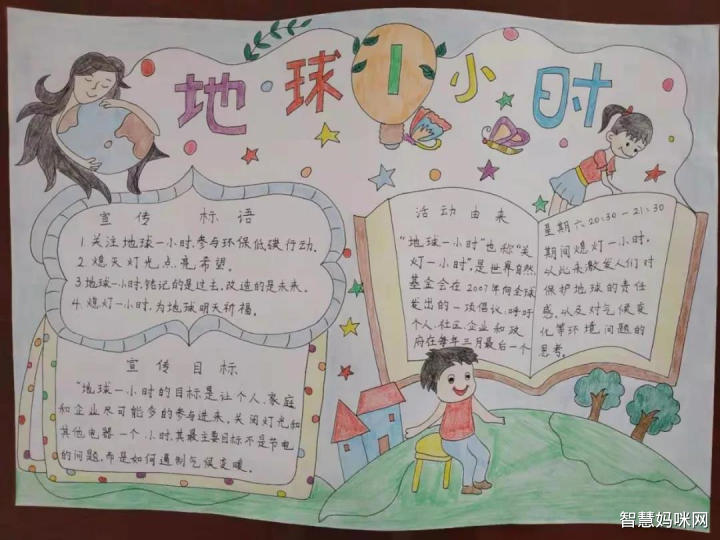 地球1小时
宣传标语
1.关注地球一小时,参与环保低碳行动.
2.熄灭灯光,点亮希望。
3.地球一小时,铭记的是过去,改造的是未来。
4.熄灯一小时,为地球明天祈福。
宣传目标
"地球一小时的目标是让个人、家庭
和企业尽可能多的参与进来,关闭灯光和
其他电器一个小时,其最主要目标不是节电
的问题,而是如何遏制气候变暖。
活动由来
"地球一小时"也称"关
灯一小时",是世界自然
基金会在2007年向全球
发出的一项倡议,呼吁
个人、社区、企业和政
府在每年三月最后一个
星期六20:30-21:30
期间熄灯一小时,
以此来激发人们对
保护地球的责任
感,以及对气候变
化等环境问题的
思考。
智慧妈咪网